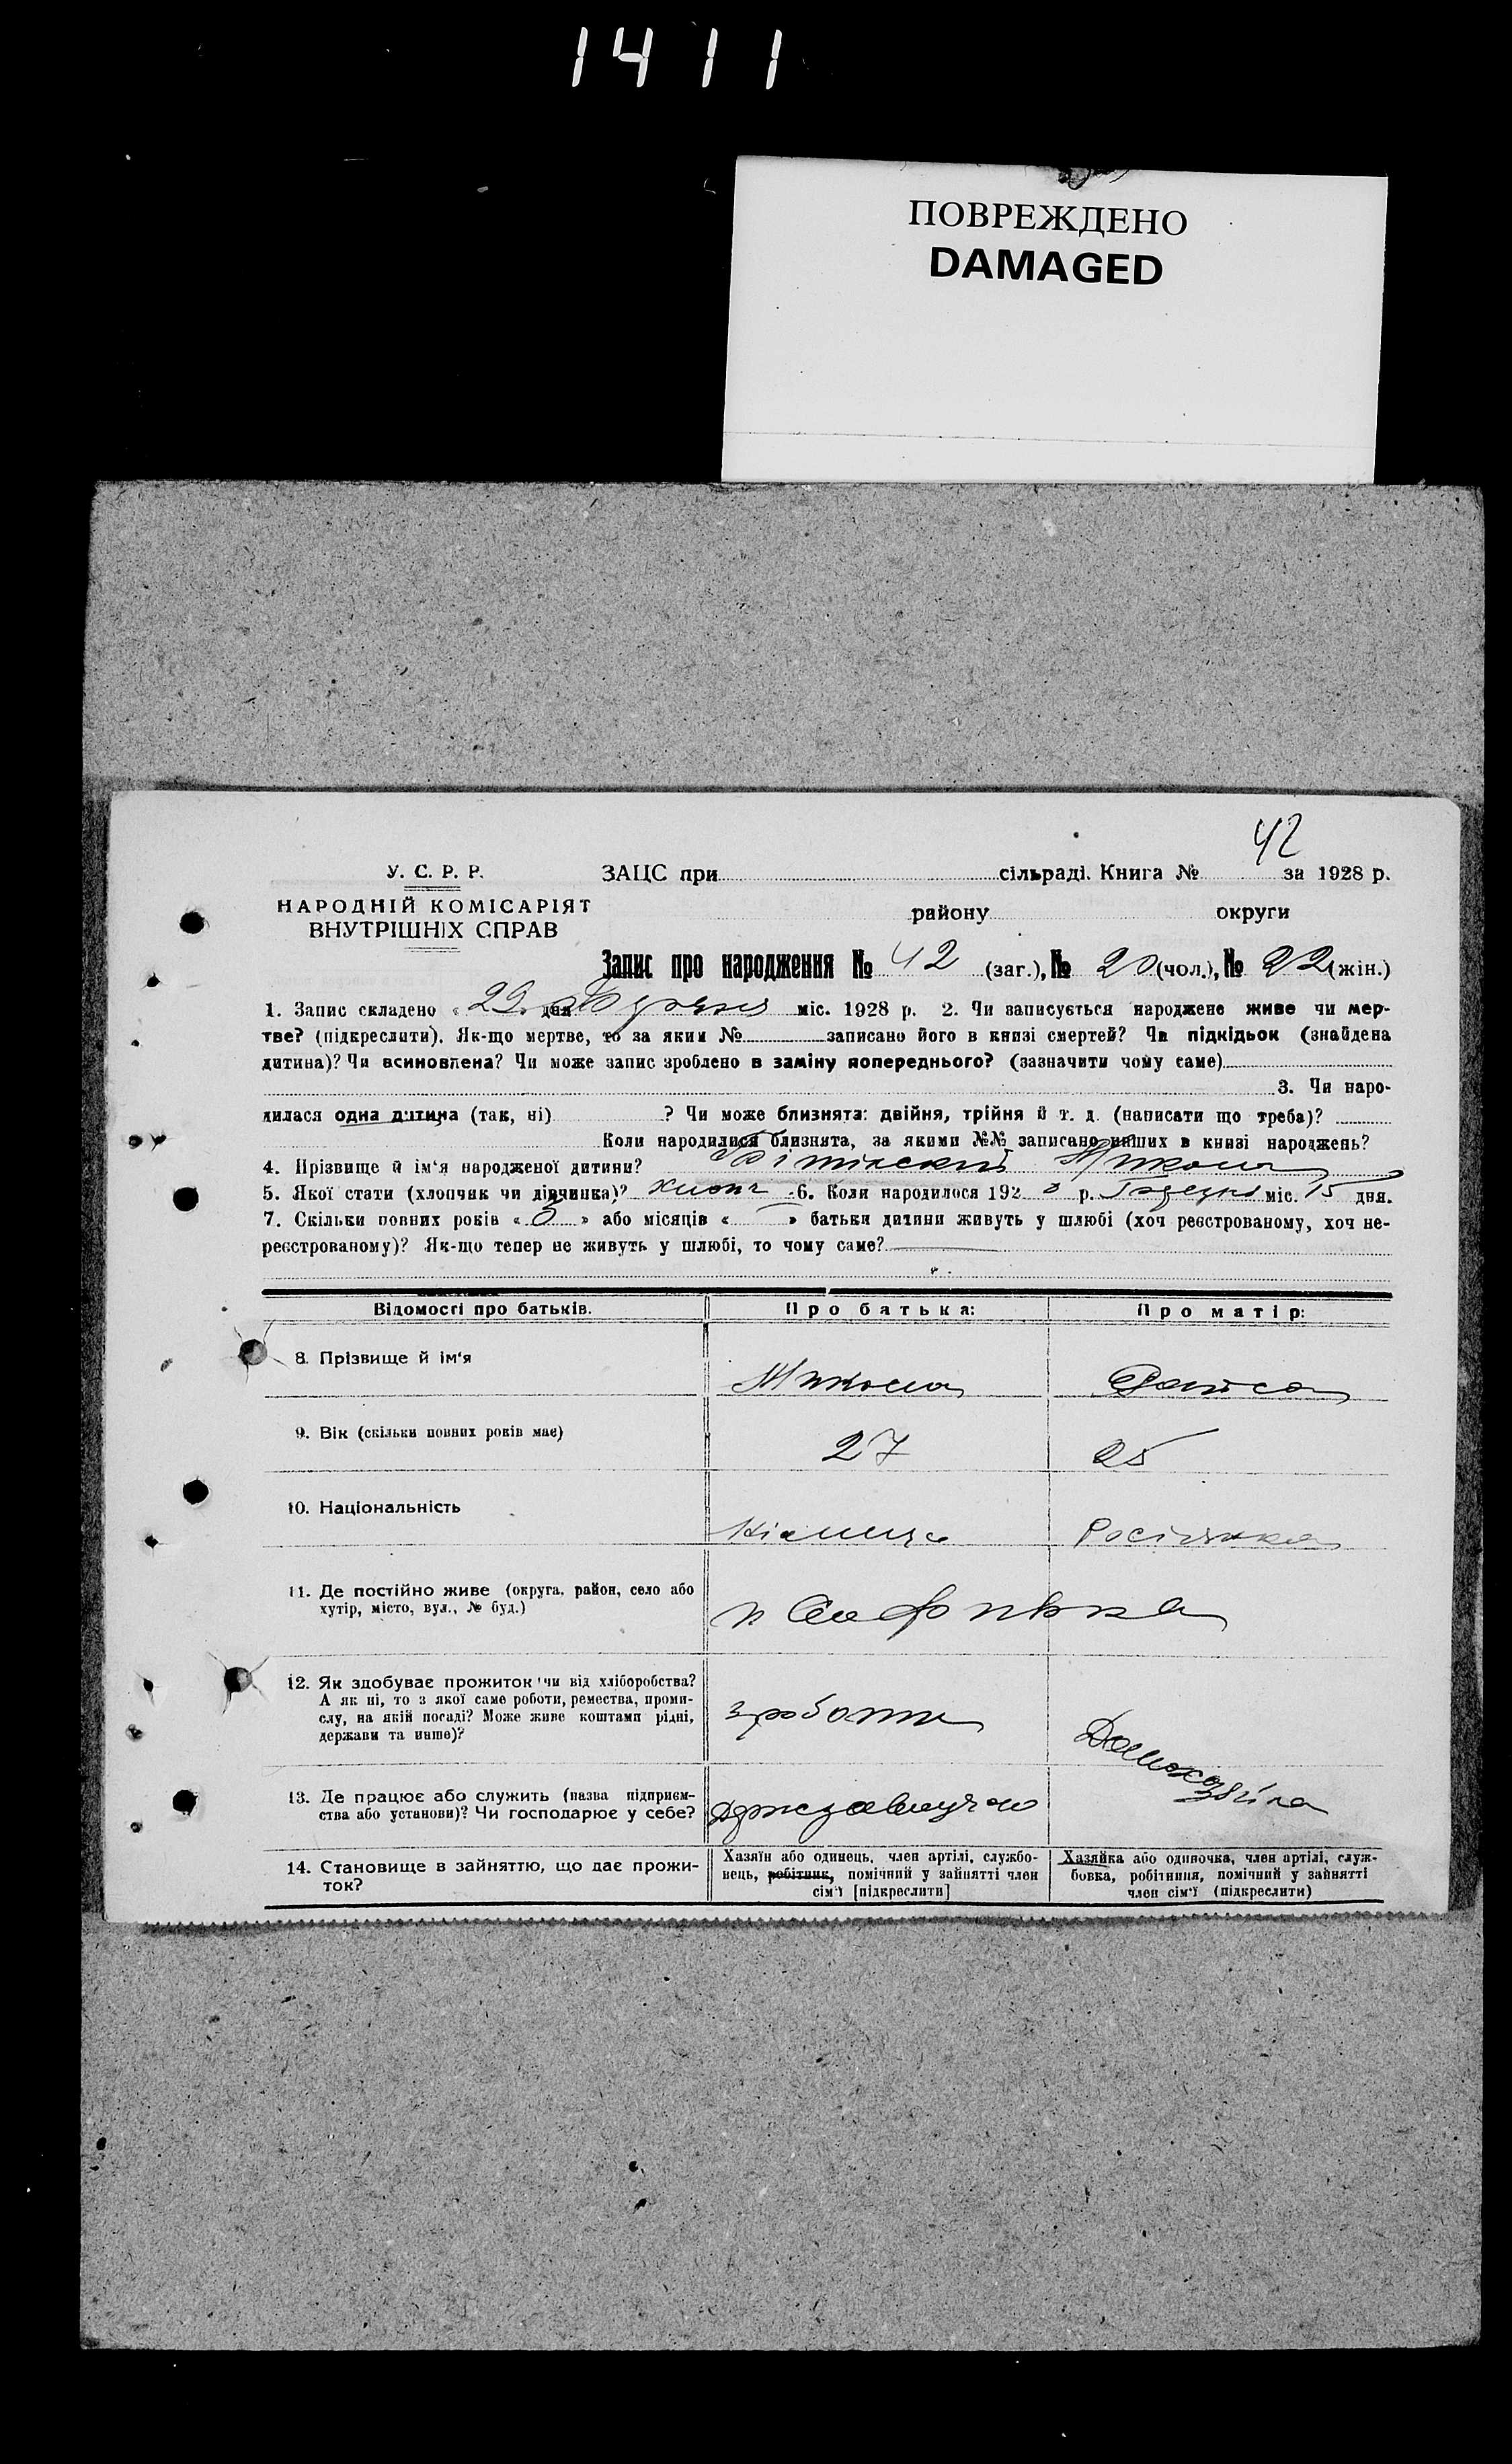 1411
ПОВРЕЖДЕНО
DAMAGED
42
У. С. Р. Р. ЗАЦС при сільраді. Книга № за 1928 р.
НАРОДНІЙ КОМІСАРІЯТ району округи
ВНУТРІШНІХ СПРАВ
Запис про народження № 42 (заг.), № 20 (чол.), № 22 (жін.)
1. Запис складено « 29 дня міс. 1928 р. 2. Чи записується народжене живе чи мер-
тве? (підкреслити). Як-що мертве, то за яким № записано його в книзі смертей? Чи підкідьок (знайдена
дитина)? Чи всиновлена? Чи може запис зроблено в заміну попереднього? (зазначити чому саме)
3. Чи наро-
дилася одна дитина (так, ні) ? Чи може близнята: двійня, трійня й т. д. (написати що треба)?
Коли народилися близнята, за якими №№ записано инших в книзі народжень?
4. Прізвище й ім'я народженої дитини? Микола
5. Якої стати (хлопчик чи дівчинка)? хлопч 6. Коли народилося 192 8 р. міс. 15 дня.
7. Скільки повних років « » або місяців « » батьки дитини живуть у шлюбі (хоч реєстрованому, хоч не-
реєстрованому)? Як-що тепер не живуть у шлюбі, то чому саме?
Відомості про батьків. Про батька: Про матір:
8. Прізвище й ім'я Микола Раїса
9. Вік (скільки повних років має) 27 25
10. Національність Росіянка
11. Де постійно живе (округа, район, село або
хутір, місто, вул., № буд.) п Софиївка
12. Як здобуває прожиток чи від хліборобства?
А як ні, то з якої саме роботи, ремества, проми-
слу, на якій посаді? Може живе коштами рідні,
держави та инше)? з роботи
13. Де працює або служить (назва підприєм-
ства або установи)? Чи господарює у себе?
14. Становище в зайняттю, що дає прожи-
ток?
Хазяїн або одинець, член артілі, службо-
вець, робітник, помічний у зайнятті член
сім'ї [підкреслити]
Хазяйка або одиночка, член артілі, служ-
бовка, робітниця, помічний у зайнятті
член сім'ї (підкреслити)